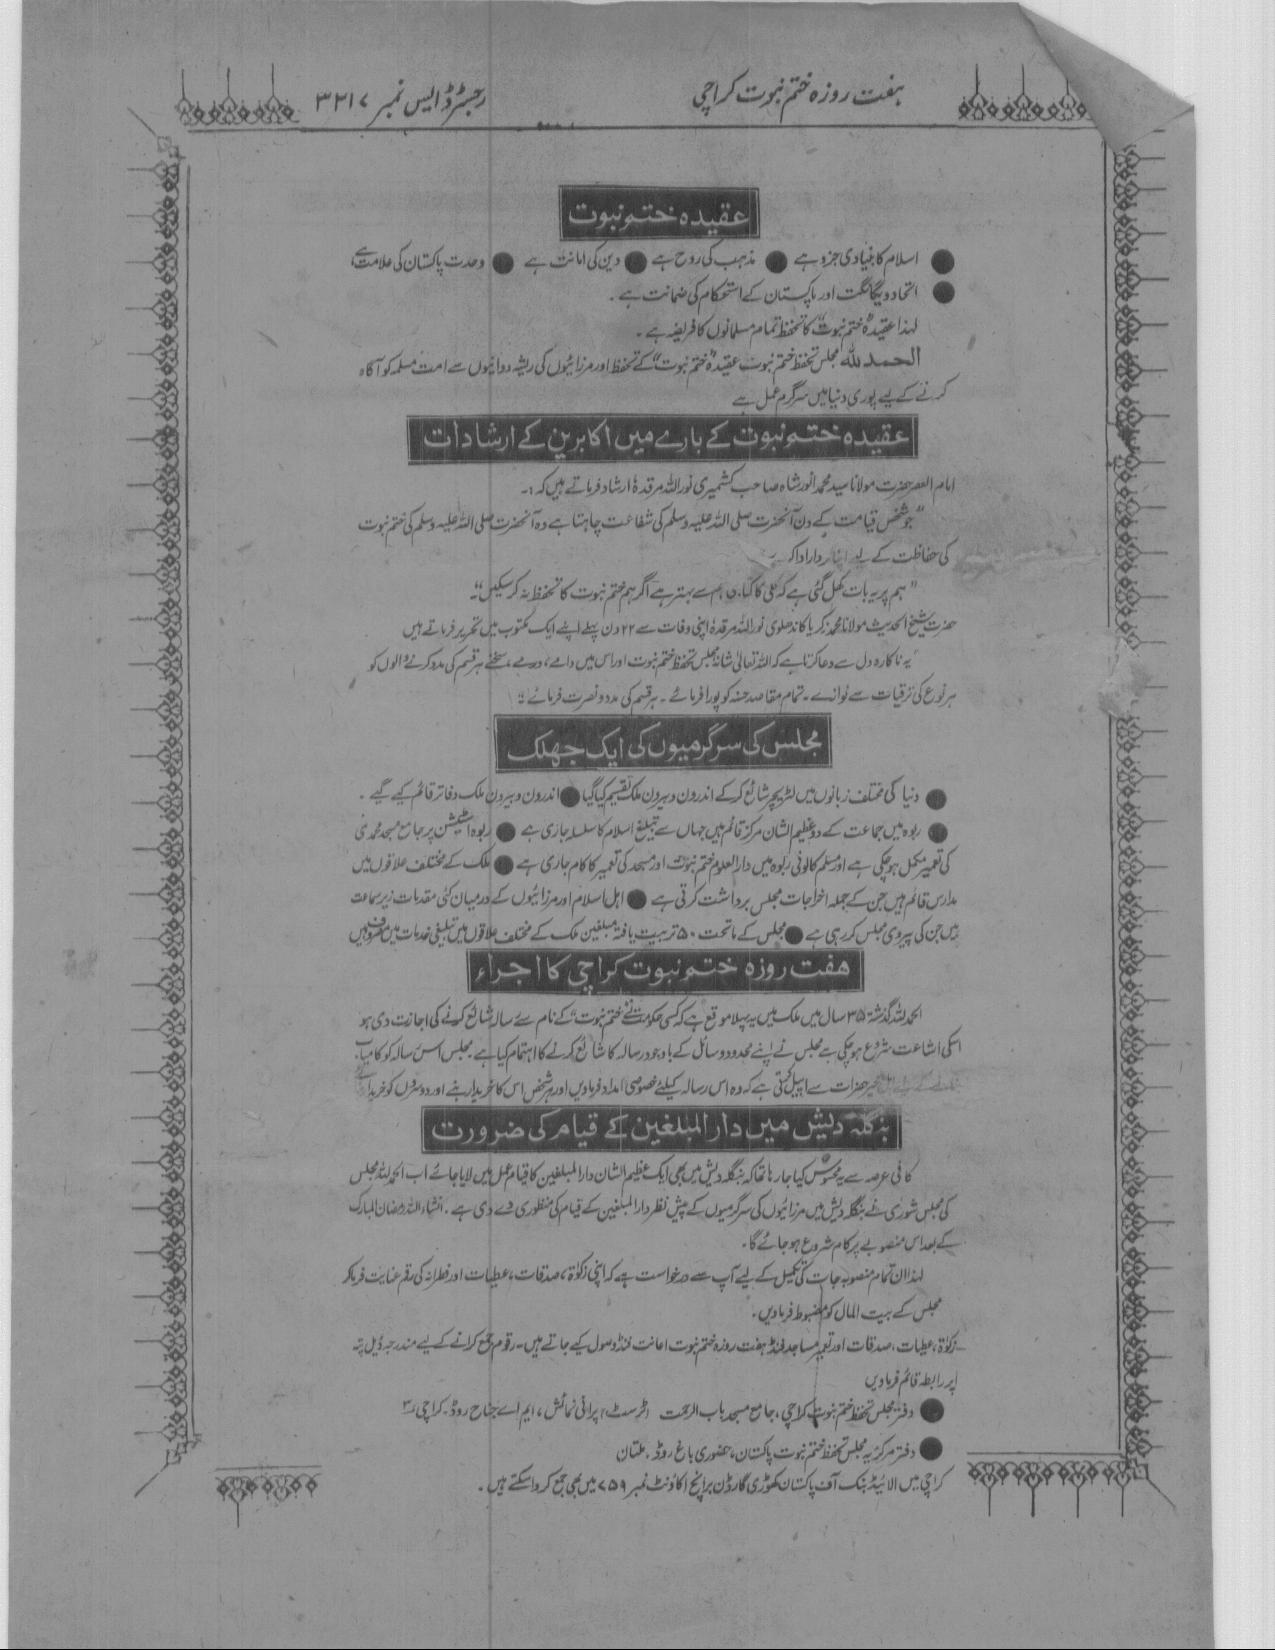 ہفت روزہ ختم نبوت کراچی
رجسٹرڈ ایس نمبر ۳۲۱۷
عقیدہ ختم نبوت
● اسلام کا بنیادی جزو ہے ● مذہب کی روح ہے ● دین کی امانت ہے ● وحدت پاکستان کی علامت ہے،
● اتحاد و یگانگت اور پاکستان کے استحکام کی ضمانت ہے ۔
لہذا عقیدہ "ختم نبوت" کا تحفظ تمام مسلمانوں کا فریضہ ہے ۔
الحمد للہ مجلس تحفظ ختم نبوت عقیدہ "ختم نبوت" کے تحفظ اور مرزائیوں کی ریشہ دوانیوں سے امت مسلمہ کو آگاہ
کرنے کے لیے پوری دنیا میں سرگرم عمل ہے
عقیدہ ختم نبوت کے بارے میں اکابرین کے ارشادات
امام العصر حضرت مولانا سید محمد انور شاہ صاحب کشمیری نور اللہ مرقدہٗ ارشاد فرماتے ہیں کہ :۔
"جو شخص قیامت کے دن آنحضرت صلی اللہ علیہ وسلم کی شفاعت چاہتا ہے وہ آنحضرت صلی اللہ علیہ وسلم کی ختم نبوت
کی حفاظت کے لیے اپنا کردار ادا کرے
"ہم پر یہ بات کھل گئی ہے کہ گلی کا کتا بھی ہم سے بہتر ہے اگر ہم ختم نبوت کا تحفظ نہ کر سکیں"۔
حضرت شیخ الحدیث مولانا محمد زکریا کاندھلوی نور اللہ مرقدہٗ اپنی وفات سے ۲۲ دن پہلے اپنے ایک مکتوب میں تحریر فرماتے ہیں
"یہ ناکارہ دل سے دعا کرتا ہے کہ اللہ تعالیٰ شانہ مجلس تحفظ ختم نبوت اور اس میں دامے، درمے، سخنے ہر قسم کی مدد کرنے والوں کو
ہر نوع کی ترقیات سے نوازے ۔ تمام مقاصد حسنہ کو پورا فرمائے ۔ ہر قسم کی مدد و نصرت فرمائے"
مجلس کی سرگرمیوں کی ایک جھلک
● دنیا کی مختلف زبانوں میں لٹریچر شائع کرکے اندرون و بیرون ملک تقسیم کیا گیا ● اندرون و بیرون ملک دفاتر قائم کیے گیے ۔
● ربوہ میں جماعت کے دو عظیم الشان مرکز قائم ہیں جہاں سے تبلیغ اسلام کا سلسلہ جاری ہے ● ربوہ اسٹیشن پر جامع مسجد محمدی
کی تعمیر مکمل ہو چکی ہے اور مسلم کالونی ربوہ میں دار العلوم ختم نبوت اور مسجد کی تعمیر کا کام جاری ہے ● ملک کے مختلف علاقوں میں
مدارس قائم ہیں جن کے جملہ اخراجات مجلس برداشت کرتی ہے ● اہل اسلام اور مرزائیوں کے درمیان کئی مقدمات زیر سماعت
ہیں جن کی پیروی مجلس کر رہی ہے ● مجلس کے ماتحت ۵۰ تربیت یافتہ مبلغین ملک کے مختلف علاقوں میں تبلیغی خدمات میں مصروف ہیں
ہفت روزہ ختم نبوت کراچی کا اجراء
الحمد للہ گذشتہ ۳۵ سال میں ملک میں یہ پہلا موقع ہے کہ کسی حکومت نے "ختم نبوت" کے نام سے رسالہ شائع کرنے کی اجازت دی ہو
اسکی اشاعت شروع ہو چکی ہے مجلس نے اپنے محدود وسائل کے باوجود رسالہ کا شائع کرنے کا اہتمام کیا ہے مجلس اس رسالہ کو کامیاب
کے لیے اہل خیر حضرات سے اپیل کرتی ہے کہ وہ اس رسالہ کیلئے خصوصی امداد فرماویں اور ہر شخص اس کا خریدار بنے اور دوسروں کو خریدار
بنگلہ دیش میں دار المبلغین کے قیام کی ضرورت
کافی عرصہ سے یہ محسوس کیا جا رہا تھا کہ بنگلہ دیش میں بھی ایک عظیم الشان دار المبلغین کا قیام عمل میں لایا جائے اب الحمد للہ مجلس
کی مجلس شوریٰ نے بنگلہ دیش میں مرزائیوں کی سرگرمیوں کے پیش نظر دار المبلغین کے قیام کی منظوری دے دی ہے ۔ انشاء اللہ رمضان المبارک
کے بعد اس منصوبے پر کام شروع ہو جائے گا ۔
لہذا ان تمام منصوبہ جات کی تکمیل کے لیے آپ سے درخواست ہے کہ اپنی زکوٰۃ، صدقات، عطیات اور فطرانہ کی رقم عنایت فرما کر
مجلس کے بیت المال کو مضبوط فرماویں ۔
زکوٰۃ، عطیات، صدقات اور تعمیر مساجد فنڈ ہفت روزہ ختم نبوت اعانت فنڈ وصول کیے جاتے ہیں ۔ رقوم جمع کرانے کے لیے مندرجہ ذیل پتہ
پر رابطہ قائم فرماویں
● دفتر مجلس تحفظ ختم نبوت کراچی، جامع مسجد باب الرحمت (ٹرسٹ) پرانی نمائش، ایم اے جناح روڈ ۔ کراچی ۳
● دفتر مرکزیہ مجلس تحفظ ختم نبوت پاکستان، حضوری باغ روڈ، ملتان
کراچی میں الائیڈ بنک آف پاکستان کھوڑی گارڈن برانچ اکاونٹ نمبر ۷۵۹ میں بھی جمع کروا سکتے ہیں ۔